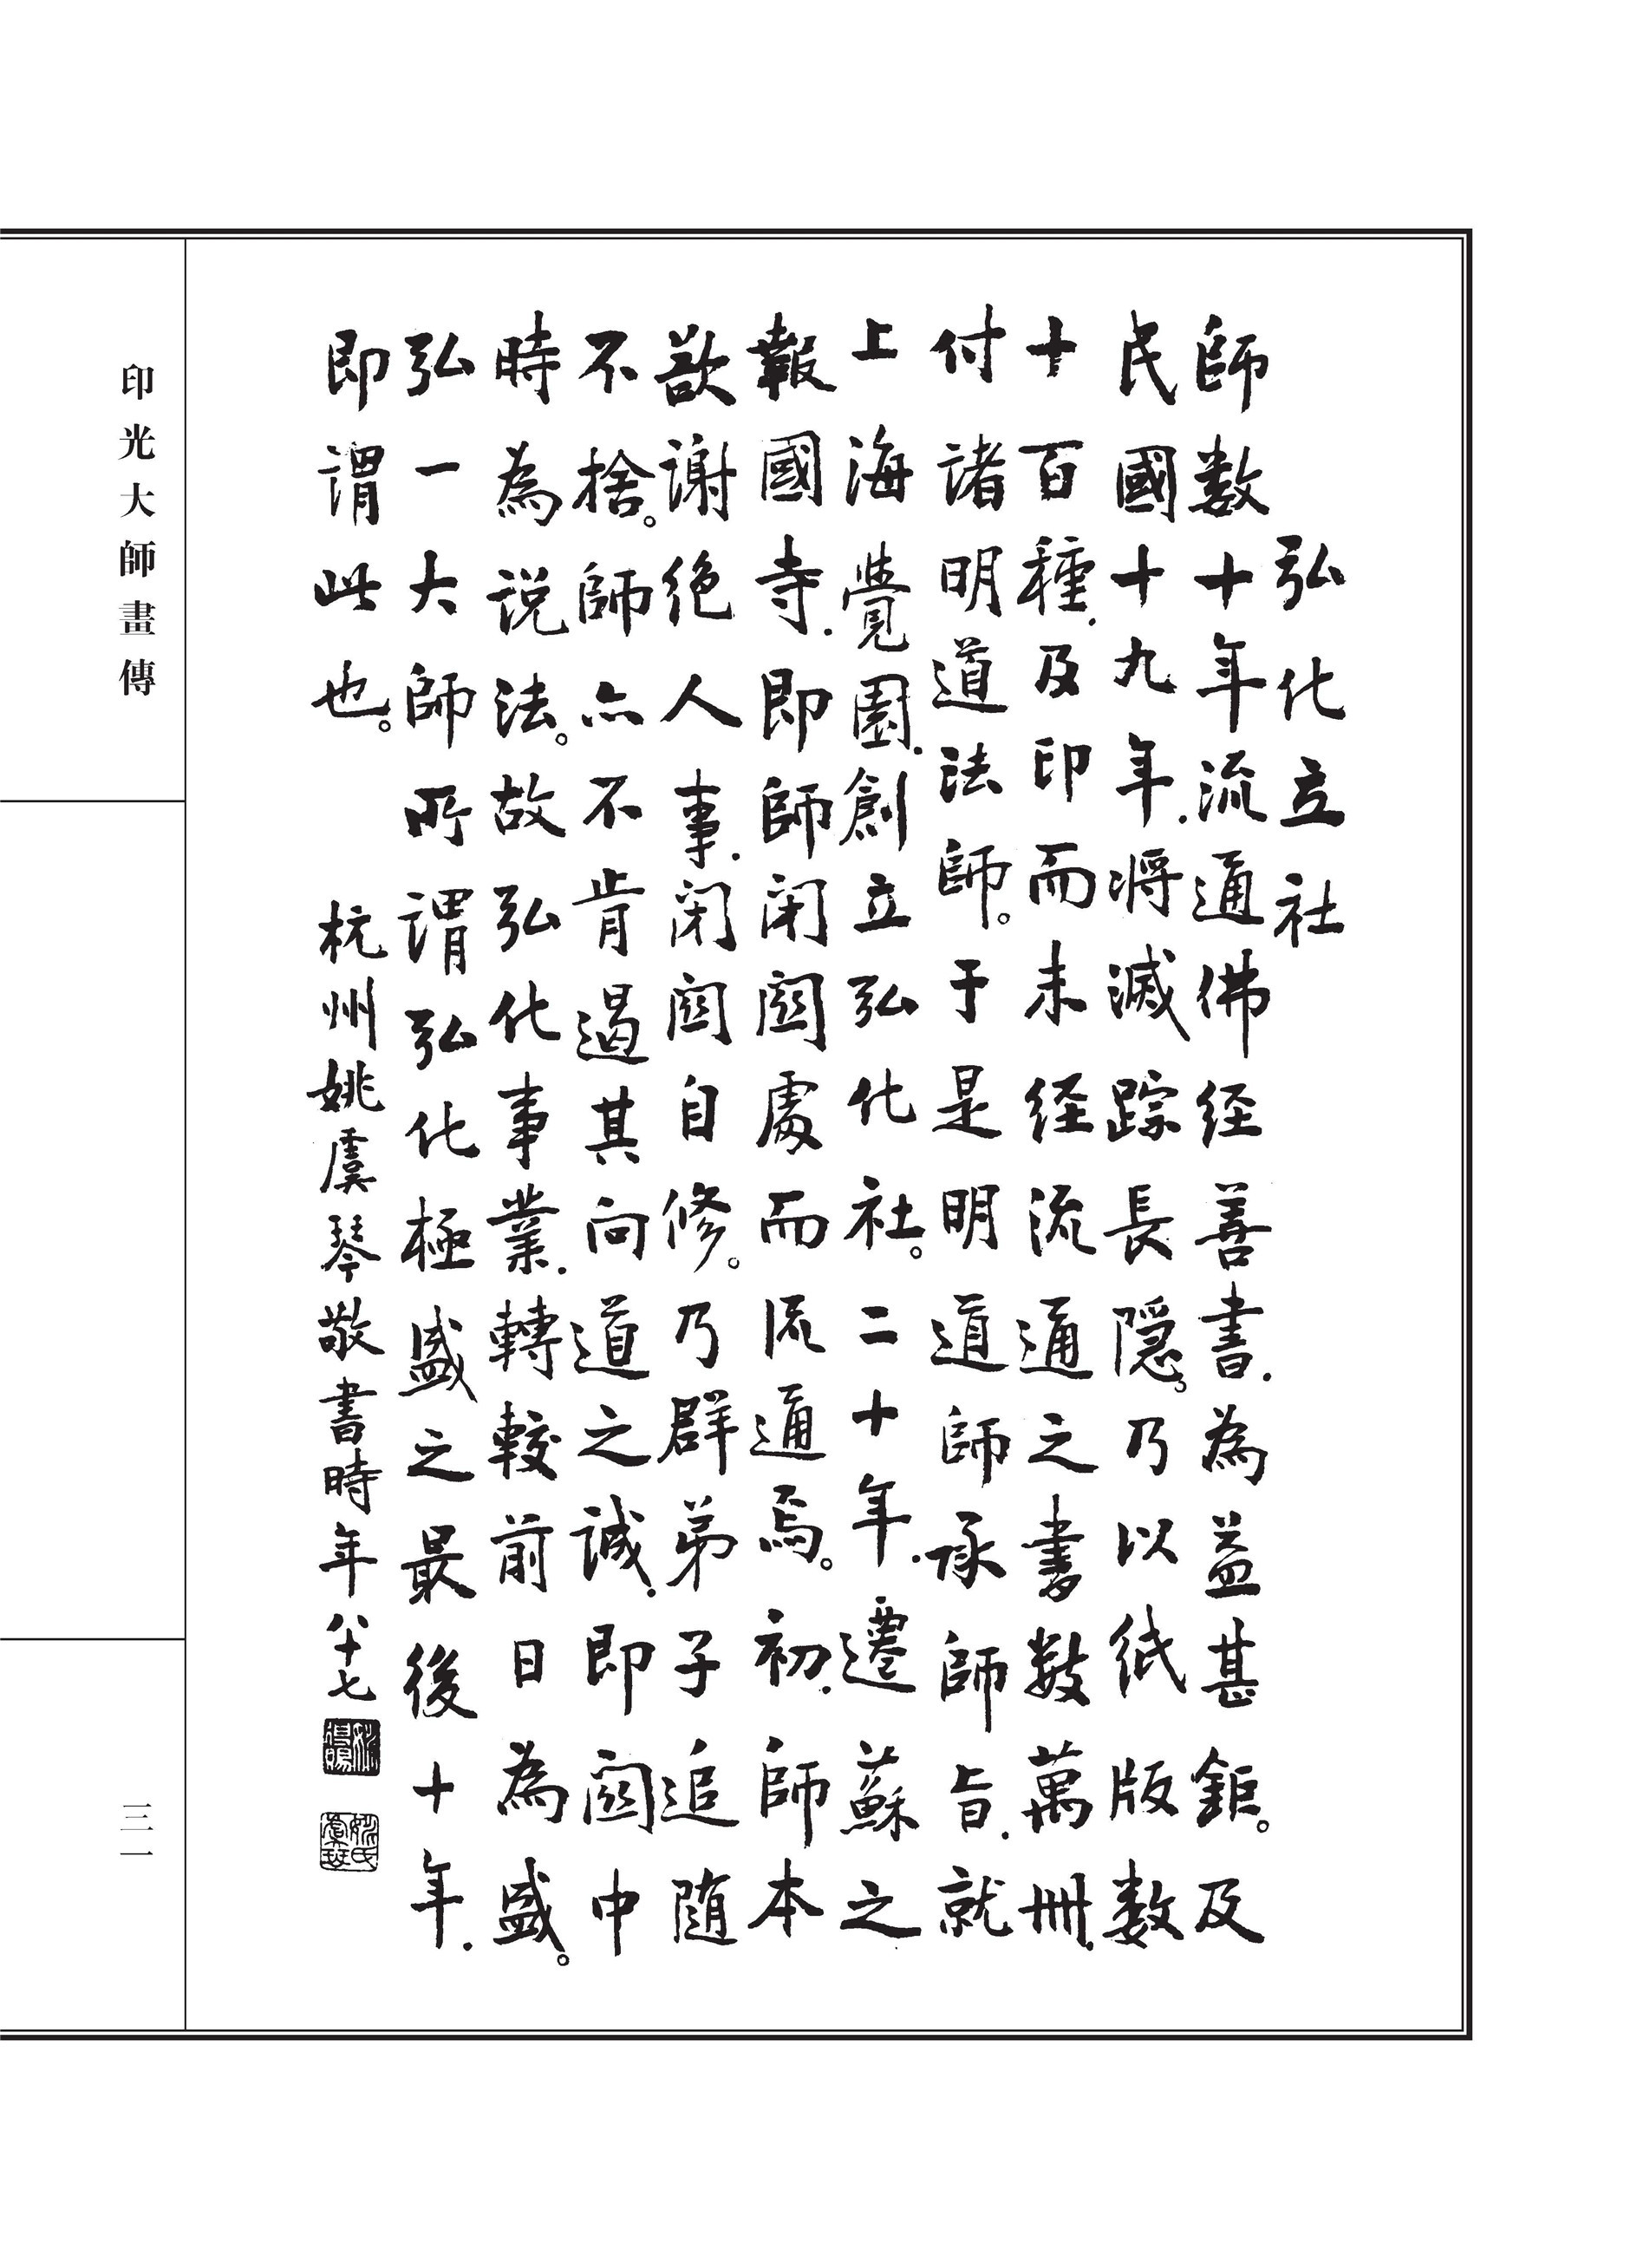 弘化立社
師数十年流通佛经善書.為益甚鉅。及
民國十九年.將滅踪長隱。乃以纸版数
十百種.及印而未经流通之書数萬冊.
付諸明道法師。于是明道師承師旨.就
上海覺園.創立弘化社。二十年.遷蘇之
報國寺.即師闭關處而流通焉。初.師本
欲谢绝人事.闭關自修。乃群弟子追随
不捨。師亦不肯遏其向道之诚.即關中
時為说法。故弘化事業.轉較前日為盛。
弘一大師所謂弘化極盛之最後十年.
即谓此也。 杭州姚虞琴敬書時年八十七
印光大師畫傳
三一